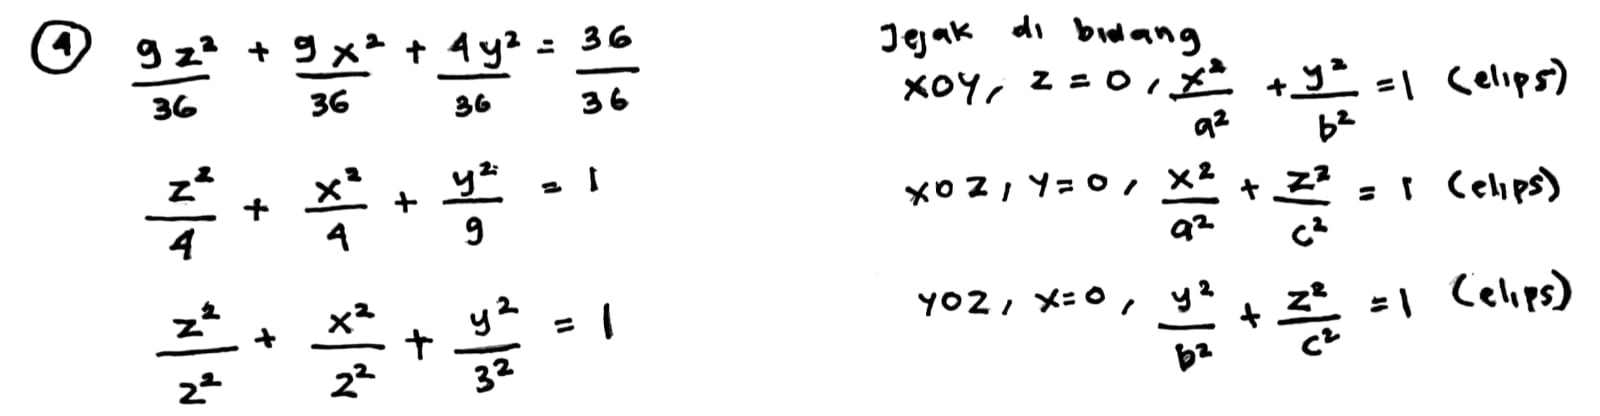 ④ 9z²/36 + 9x²/36 + 4y²/36 = 36/36
z²/4 + x²/4 + y²/9 = 1
z²/2² + x²/2² + y²/3² = 1
Jejak di bidang
XOY, z = 0, x²/a² + y²/b² = 1 (elips)
XOZ, y = 0, x²/a² + z²/c² = 1 (elips)
YOZ, x = 0, y²/b² + z²/c² = 1 (elips)